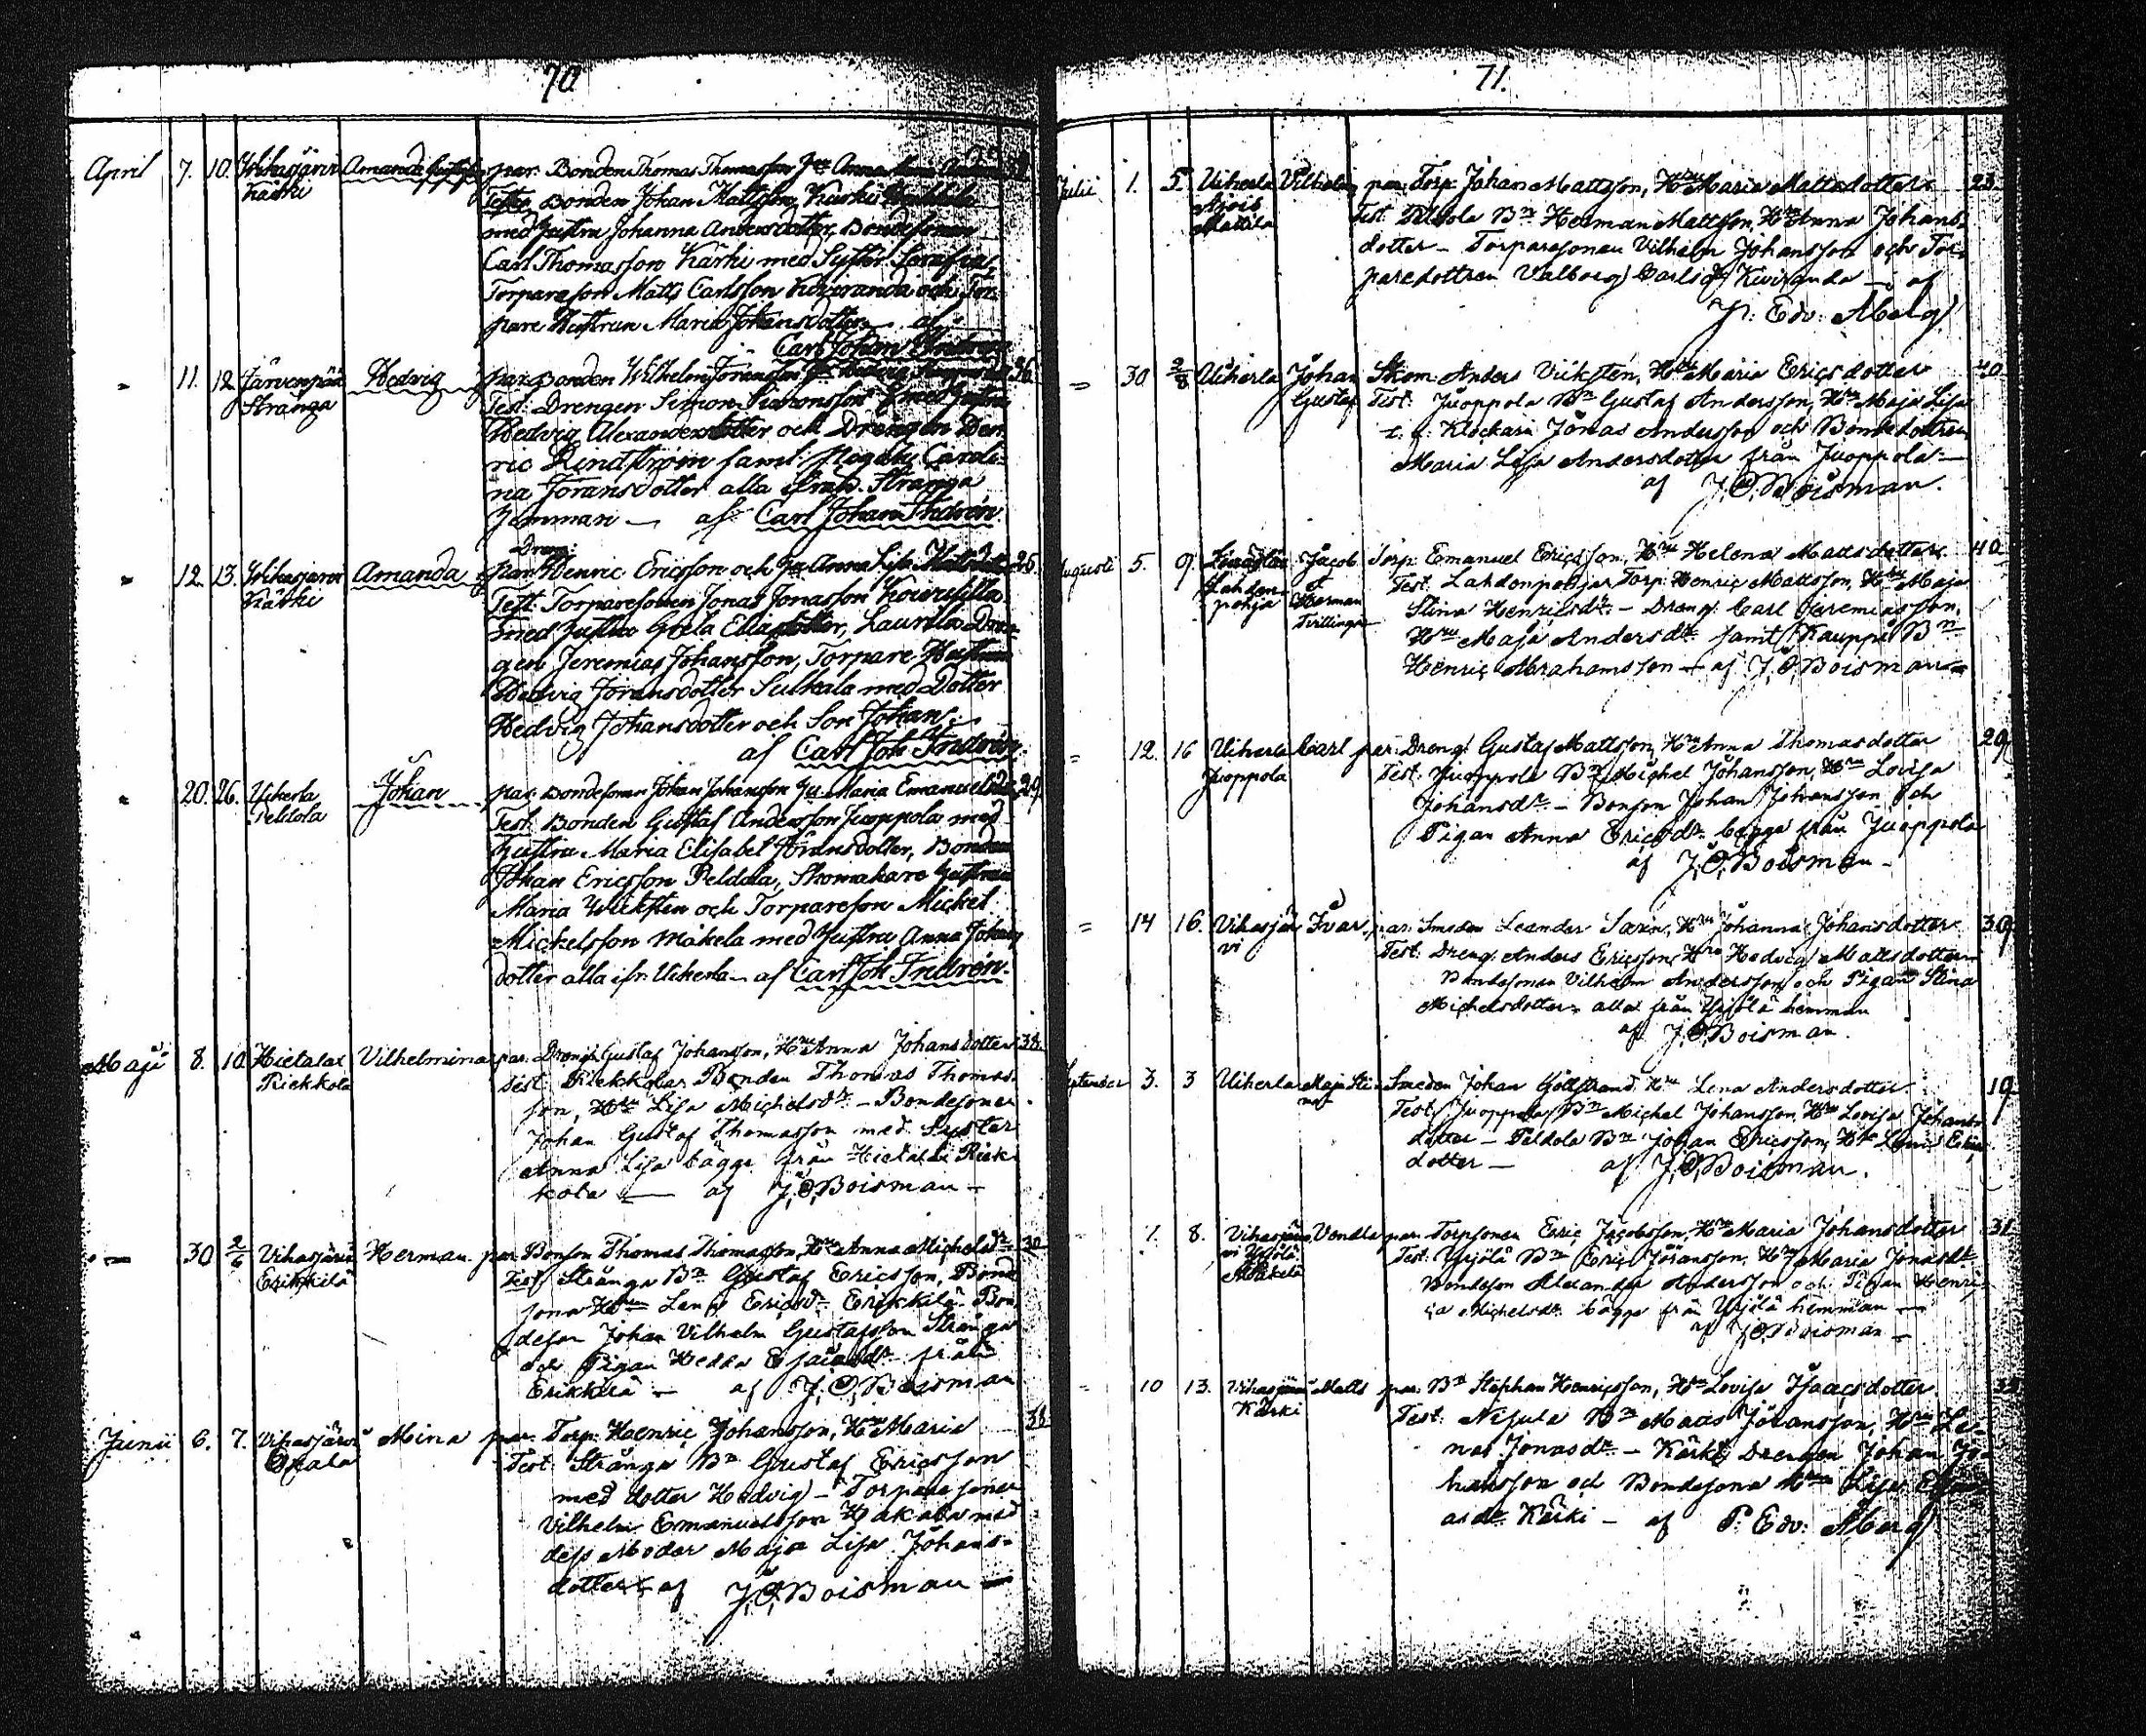 70
April 7. 10. Vihasjärvi Amanda Gustafva par. Bonden Thomas Thomasson Hu Anna Maria
Kärki Test. Bonden Johan Mattsson Kaski
med Hustru Johanna Andersdotter, Bondesonen
Carl Thomasson Kärki med Syster Serafia
Torpareson Matts Carlsson Koivuranda och Tor-
pare Hustrun Maria Johansdotter. af
Carl Johan Indrén
" 11. 12. Järvenpää Hedvig par. Bonden Wilhelm Göransson Hu Hedvig 36.
Stränga Test. Drengen Simon Simonsson med Hustru
Hedvig Alexandersdotter och Drengen Hen-
ric Lindström samt Pigan Caroli-
na Göransdotter alla ifrån Stränga
hemman — af Carl Johan Indrén.
Dreng.
" 12. 13. Vihasjärvi Amanda par. Henric Ericsson och Hu Anna Lisa Mattsdotter 35.
Kärki Test. Torparesonen Jonas Jonasson Koivusilla
med Hustru Greta Eliædotter, Laurila Dren-
gen Jeremias Johansson, Torpare Hustrun
Hedvig Göransdotter Sulkala med Dotter
Hedvig Johansdotter och Son Johan.
af Carl Joh Indrén.
" 20. 26. Uiherla Johan par. Bondesonen Johan Johansson Hu Maria Emanuelsdr. 29.
Peldola Test. Bonden Gustaf Andersson Juoppola med
Hustru Maria Elisabet Göransdotter, Bonden
Johan Ericsson Peldola, Skomakare Hustrun
Maria Wicksten och Torpareson Mickel
Mickelsson Mäkelä med Hustru Anna Johans
dotter alla ifr. Uiherla — af Carl Joh Indrén.
Maji 8. 10. Hietalax Vilhelmina par. Dreng. Gustaf Johansson, Hru Anna Johansdotter 38.
Riekkola Test. Riekkolax Bonden Thomas Thomas-
son, Hru Lisa Michelsdr. – Bondesonen
Johan Gustaf Thomasson med Syster
Anna Lisa bägge från Hietalax Riek-
kola — af J. O. Boisman —
" 30 2/6 Vihasjärvi Herman par. Bonson Thomas Thomasson, Hru Anna Michelsdr. 30
Erikkilä Test. Stränga Bn Gustaf Ericsson, Bond
sona Hrun Lena Ericsdr. Erikkilä. Bon-
deson Johan Vilhelm Gustafsson Stränga
och Pigan Hedda Esaiasdr. från
Erikkilä — af J. O. Boisman
Junii 6. 7. Vihasjärvi Mina par. Torp. Henric Johansson, Hru Maria 38
Ojala Test. Stränga Bn Gustaf Ericsson
med dotter Hedvig – Torparesonen
Vilhelm Emanuelsson Hakala med
dess Moder Maja Lisa Johans-
dotter – af J. O. Boisman —
71.
Julii 1. 5. Uiherla Vilhelm par. Torp. Johan Mattsson, Hru Maria Mattsdotter 23.
Mattila Test. Peldola Bn Herman Mattsson, Hru Anna Johans-
dotter – Torparesonen Vilhelm Johansson och Tor-
paredottren Valborg Carlsdr Kuiranda — af
P. Edv: Åberg
" 30 2/8 Uiherla Johan Skom. Anders Vicksten, Hru Maria Ericsdotter 40
Gustaf Test. Juoppola Bn Gustaf Andersson, Hru Maja Lisa
Klockarn Jonas Andersson och Bondedottren
Maria Lisa Andersdotter från Juoppola —
af J. O. Boisman.
Augusti 5. 9. Jacob Torp. Emanuel Ericsson, Hru Helena Mattsdotter 40
Lahden- & Test. Lahdenpohja Torp. Henric Mattsson, Hru Maja
pohja Herman Stina Henricsdr. – Dreng. Carl Jeremiasson,
Tvillingar Hru Maja Andersdr. samt Kauppi Bn
Henric Abrahamsson — af J. O. Boisman —
" 12. 16 Uiherla Carl par. Dreng. Gustaf Mattsson, Hru Anna Thomasdotter 29
Juoppola Test. Juoppola Bn Michel Johansson, Hru Lovisa
Johansdr. – Bonson Johan Johansson och
Pigan Anna Ericsdr. bägge från Juoppola
af J. O. Boisman –
" 14 16. Vihasjär- Ivar, par. Smeden Leander Sarin, Hru Johanna Johansdotter 39.
vi Test. Dreng. Anders Ericsson, Hru Hedvig Mattsdotter —
Bondesonen Vilhelm Andersson och Pigan Stina
Michelsdotter, alla från Yrjölä hemman
af J. O. Boisman.
September 3. 3 Uiherla Maja Stina Smeden Johan Göstrand, Hru Lena Andersdotter 19
Test. Juoppola Bn Michel Johansson, Hru Lovisa Johans
dotter – Peldola Bn Johan Ericsson, Hru
dotter — af J. O. Boisman.
7. 8. Vihasjär- Vendla par. Torpsonen Eric Jacobsson, Hru Maria Johansdotter 31
vi Yrjölä Test. Yrjölä Bn Eric Göransson, Hru Maria Jonasdr
Mäkelä Bondeson Alexander Andersson och Pigan Henri-
ca Michelsdr. bägge från Yrjölä hemman —
af J. O. Boisman —
" 10 13. Vihasjärvi Matts par. Bn Stephan Henricsson, Hru Lovisa Isaacsdotter
Kärki Test. Nisula Bn Matts Göransson, Hru Le-
na Jonasdr. – Kärki Drengen Johan Jo-
hansson och Bondesona Hrun Lisa
asdr. Kärki – af P. Edv: Åberg